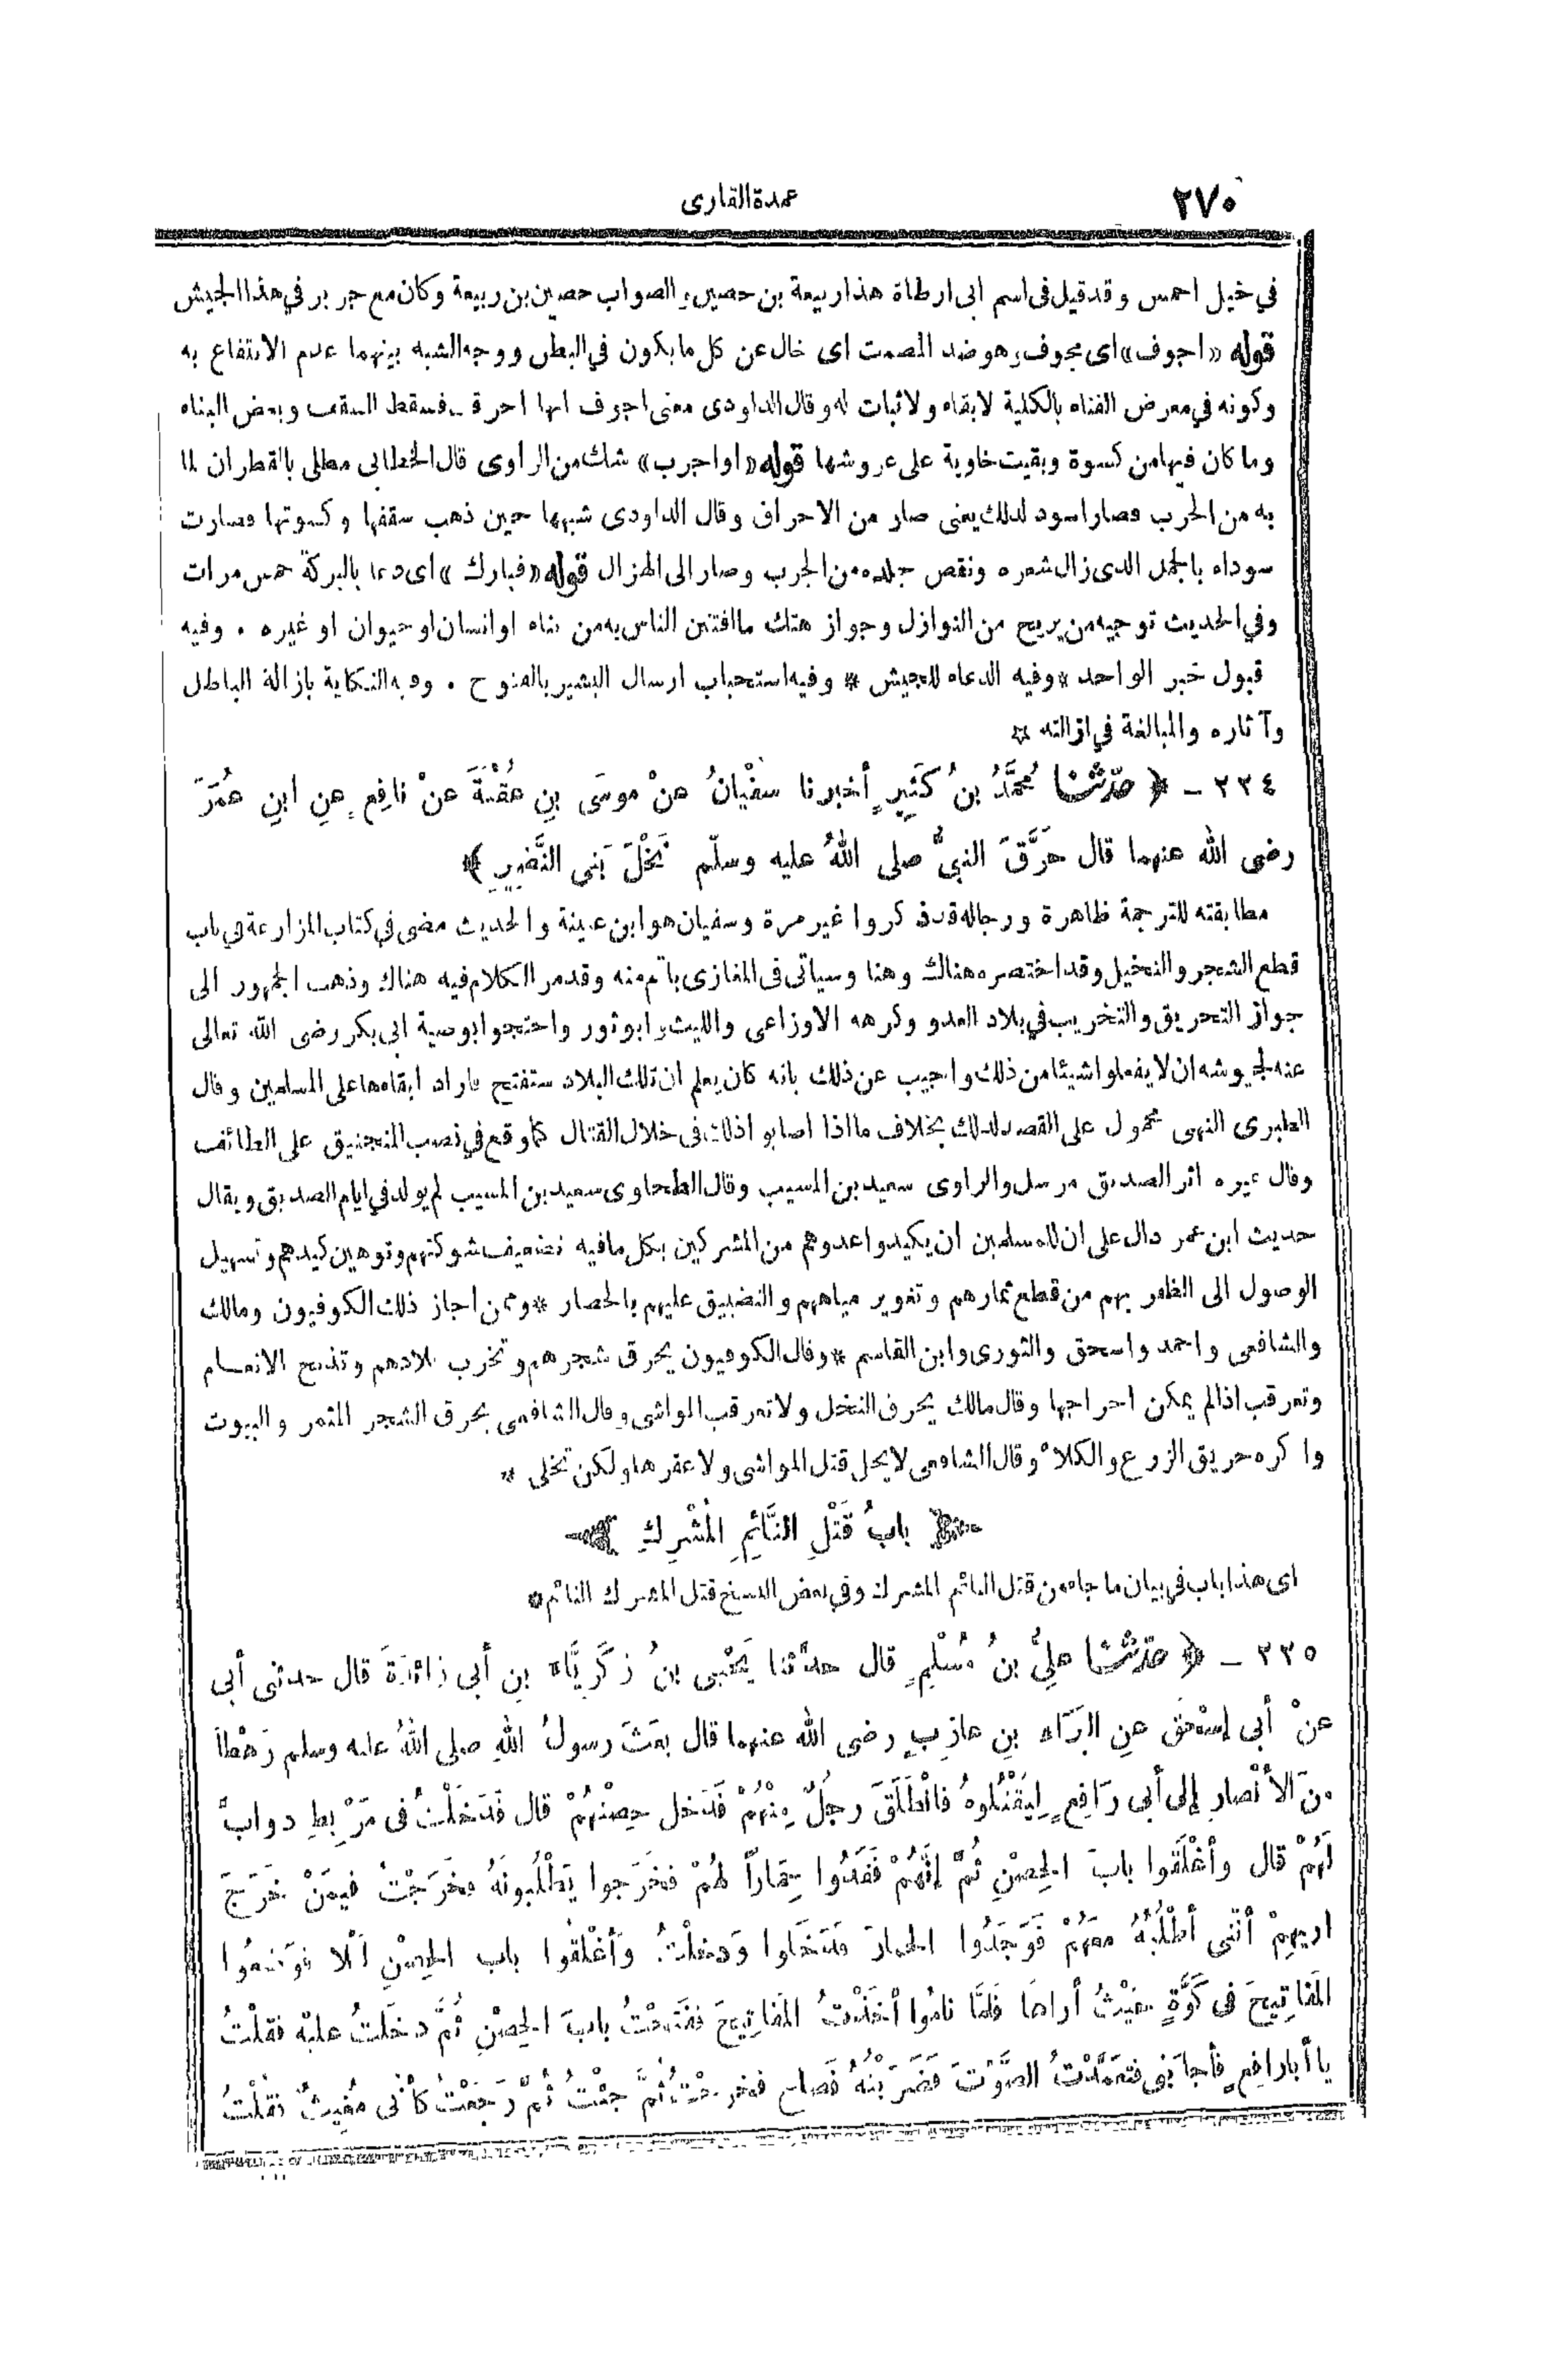 ٢٧٠
عمدة القارى
في خيل احمس وقد قيل فى اسم ابى ارطاة هذا ربيعة بن حصين والصواب حصين بن ربيعة وكان مع جرير في هذا الجيش
قوله «اجوف» اى مجوف وهو ضد المصمت اى خال عن كل ما يكون في البطن ووجه الشبه بينهما عدم الانتفاع به
وكونه في معرض الفناء بالكلية لا بقاء ولا ثبات له وقال الداودى معنى اجوف انها احرقت فسقط السقف وبعض البناء
وما كان فيها من كسوة وبقيت خاوية على عروشها قوله «او اجرب» شك من الراوى قال الخطابى مطلى بالقطران لما
به من الجرب فصار اسود لذلك يعنى صار من الاحراق وقال الداودى شبهها حين ذهب سقفها وكسوتها فصارت
سوداء بالجمل الذى زال شعره ونقص جلده من الجرب وصار الى الهزال قوله «فبارك» اى دعا بالبركة خمس مرات
وفي الحديث توجيه من يريح من النوازل وجواز هتك ما افتتن الناس به من بناء او انسان او حيوان او غيره . وفيه
قبول خبر الواحد * وفيه الدعاء للجيش * وفيه استحباب ارسال البشير بالفتوح . وفيه النكاية بازالة الباطل
وآثاره والمبالغة في ازالته *
٢٢٤ - ﴿ حدّثنا مُحمَّدُ بنُ كَثِيرٍ أخبرنا سفْيانُ عنْ موسَى بنِ عُقْبَةَ عنْ نافِعٍ عنِ ابنِ عُمَرَ
رضى اللهُ عنهما قال حَرَّقَ النبيُّ صلى اللهُ عليه وسلّم نَخْلَ بَنى النَّضِيرِ ﴾
مطابقته للترجمة ظاهرة ورجاله قد ذكروا غير مرة وسفيان هو ابن عيينة والحديث مضى في كتاب المزارعة في باب
قطع الشجر والنخيل وقد اختصره هناك وهنا وسياتى فى المغازى باتم منه وقد مر الكلام فيه هناك وذهب الجمهور الى
جواز التحريق والتخريب في بلاد العدو وكرهه الاوزاعى والليث وابو ثور واحتجوا بوصية ابى بكر رضى الله تعالى
عنه لجيوشه ان لا يفعلوا شيئا من ذلك واجيب عن ذلك بانه كان يعلم ان تلك البلاد ستفتح فاراد ابقاءها على المسلمين وقال
الطبرى النهى محمول على القصد لذلك بخلاف ما اذا اصابوا ذلك فى خلال القتال كما وقع في نصب المنجنيق على الطائف
وقال غيره اثر الصديق مرسل والراوى سعيد بن المسيب وقال الطحاوى سعيد بن المسيب لم يولد في ايام الصديق ويقال
حديث ابن عمر دال على ان للمسلمين ان يكيدوا عدوهم من المشركين بكل ما فيه تضعيف شوكتهم وتوهين كيدهم وتسهيل
الوصول الى الظفر بهم من قطع ثمارهم وتغوير مياههم والتضييق عليهم بالحصار * وممن اجاز ذلك الكوفيون ومالك
والشافعى واحمد واسحق والثورى وابن القاسم * وقال الكوفيون يحرق شجرهم وتخرب بلادهم وتذبح الانعام
وتعرقب اذا لم يمكن اخراجها وقال مالك يحرق النخل ولا تعرقب المواشى وقال الشافعى يحرق الشجر المثمر والبيوت
واكره حريق الزرع والكلا وقال الشافعى لا يحل قتل المواشى ولا عقرها ولكن تخلى *
﴿ بابُ قَتْلِ النَّائِمِ المُشْرِكِ ﴾
اى هذا باب فى بيان ما جاء من قتل النائم المشرك وفي بعض النسخ قتل المشرك النائم *
٢٢٥ - ﴿ حدّثنا علِيُّ بنُ مُسْلِمٍ قال حدَّثنا يَحْيى بنُ زكَرِيَّاء بنِ أبى زائدَةَ قال حدثنى أبى
عنْ أبى إسْحَقَ عنِ البَرَاءِ بنِ عازِبٍ رضى الله عنهما قال بعَثَ رسولُ اللهِ صلى اللهُ عليه وسلم رَهْطاً
منَ الأنْصارِ إلى أبى رَافِعٍ لِيَقْتُلُوهُ فانْطَلَقَ رجُلٌ مِنْهُمْ فَدَخل حِصْنَهُمْ قال فَدَخلْتُ فى مَرْبِطِ دوابَّ
لَهُمْ قال وأغْلَقوا بابَ الحِصْنِ ثُمَّ إنَّهُمْ فَقَدُوا حِمَاراً لهُمْ فخَرَجوا يَطْلُبونَهُ فخَرَجْتُ فيمَنْ خرَجَ
اريهِمْ أنّنى أطْلُبُهُ معَهُمْ فَوَجَدُوا الحمارَ فدَخَلوا ودخلْتُ وأغْلقُوا باب الحِصْنِ لَيْلا فوَضعُوا
المَفاتِيحَ فى كَوَّةٍ حَيْثُ أراها فلمَّا نامُوا أخَذْتُ المَفاتِيحَ ففتَحْتُ بابَ الحِصْنِ ثُمَّ دخَلتُ عليْه فقلْتُ
يا أبا رافِعٍ فأجابَنى فتعمَّدْتُ الصَّوْتَ فضَرَبْتُهُ فَصاح فخرجْتُ ثُمَّ جئْتُ ثُمَّ رَجَعْتُ كأنِّى مُغيثٌ فقُلْتُ